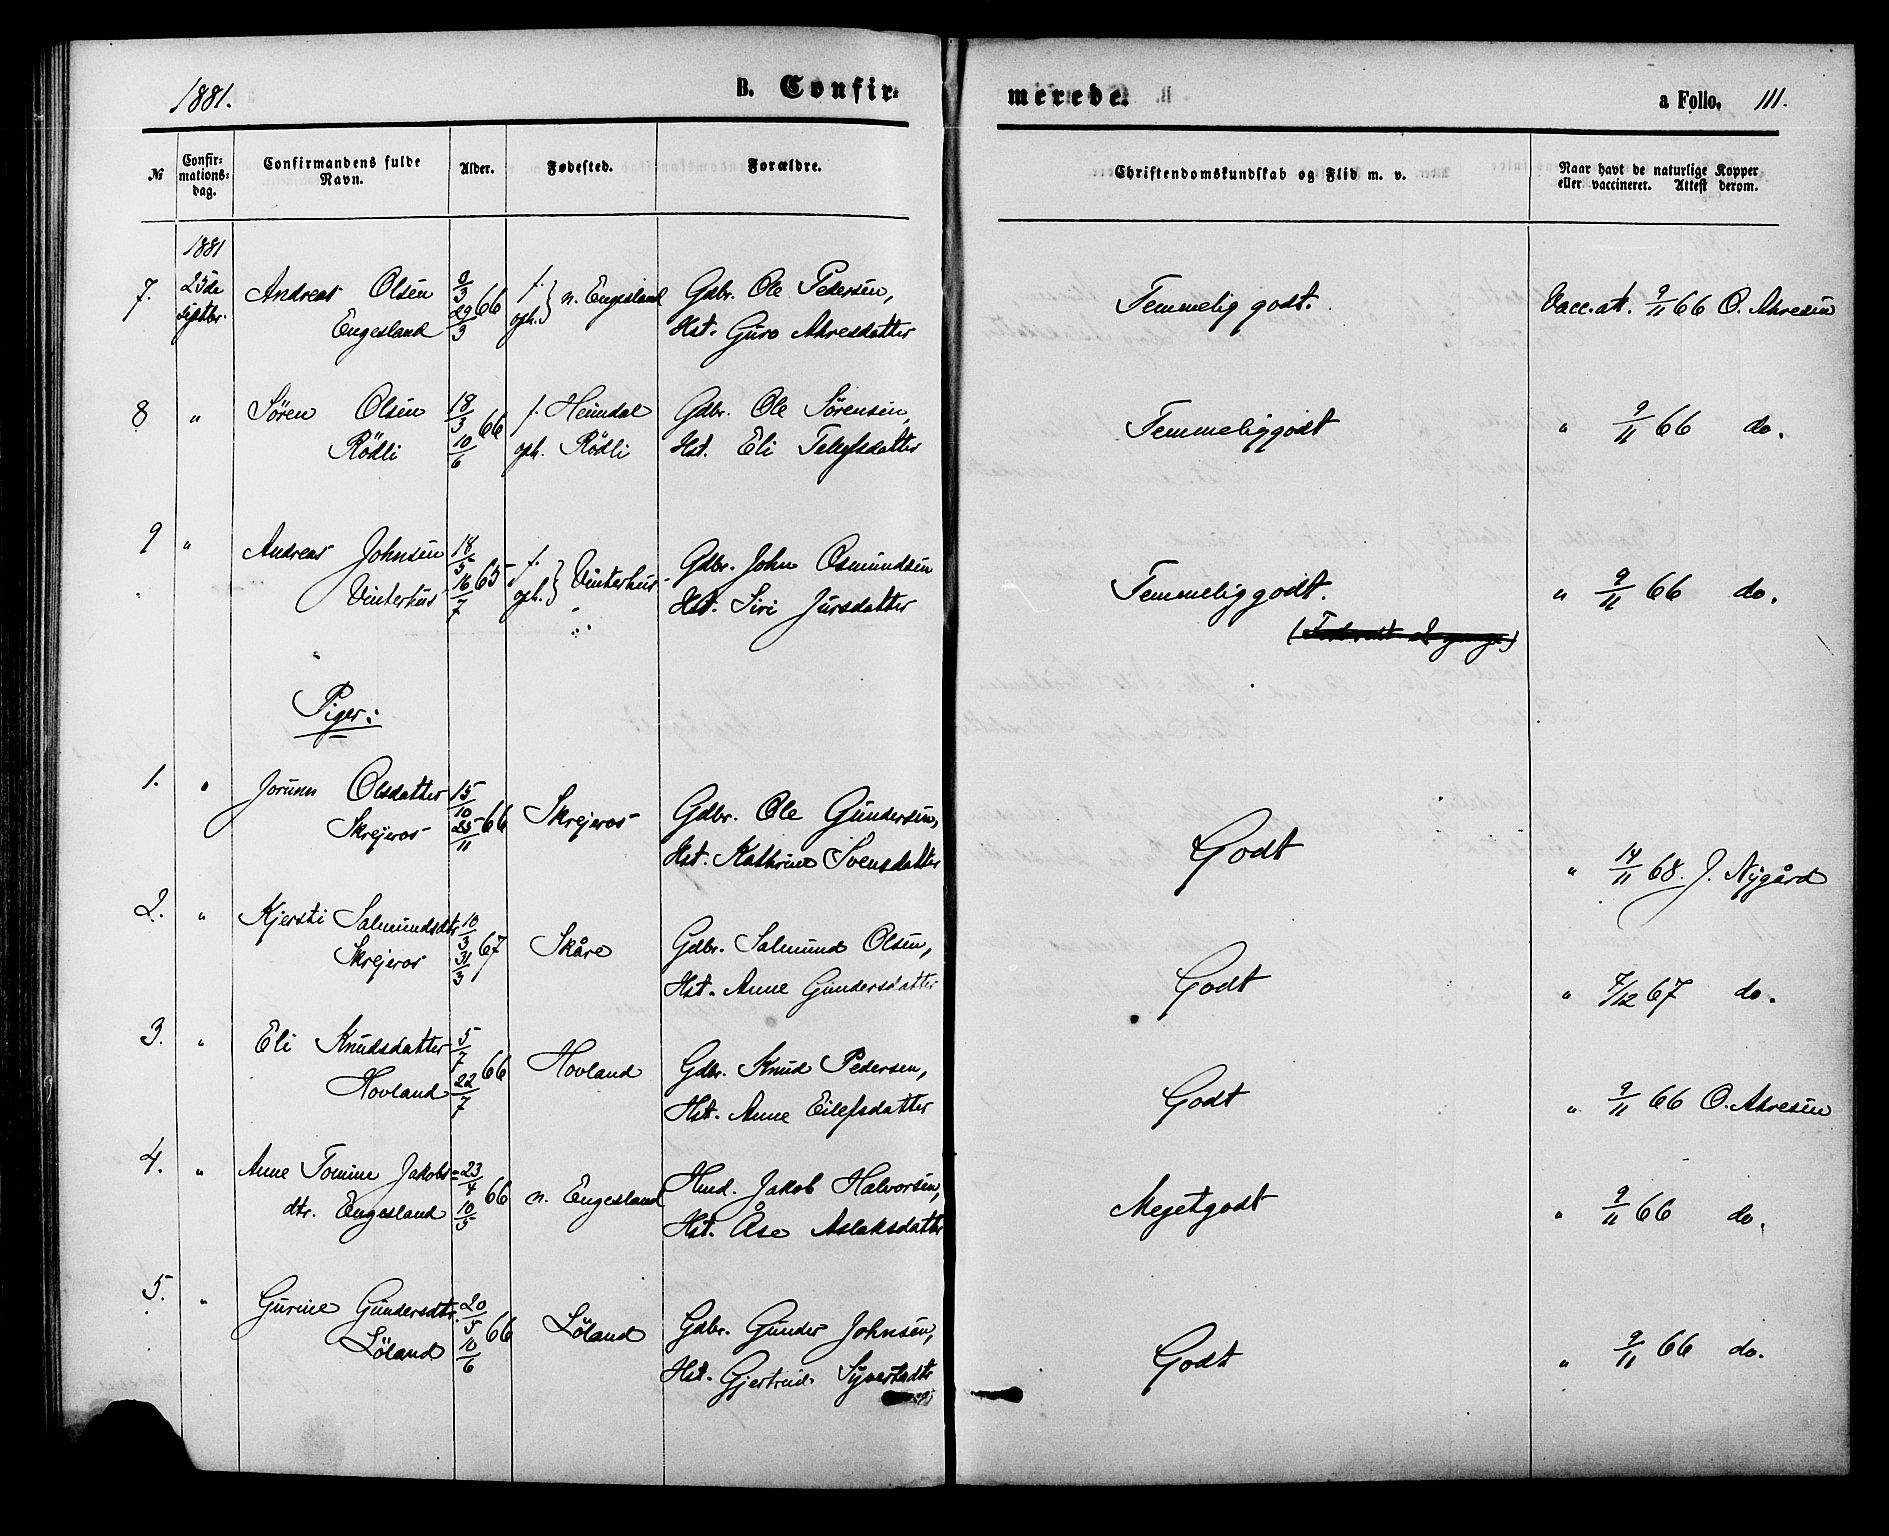 1881. B. Confir- merede. a Folio, 111.
№ Confirmationsdag. Confirmandens fulde Navn. Alder. Fødested. Forældre. Christendomskundskab og Flid m. v. Naar havt de naturlige Kopper eller vaccineret. Attest derom.
1881
7. 25de Septbr. Andreas Olsen 8/3 66 f. } n. Engesland Gdbr. Ole Pedersen, Temmelig godt. Vacc. att. 9/11 66 O. Åkresen
Engesland 29/3 oph. Hst. Guro Åkresdatter
8 " Sören Olsen 18/3 66 f. Heimdal Gdbr. Ole Sörensen, Temmelig godt " 9/11 66 do.
Rödli 10/6 oph. Rödli Hst. Eli Tellefsdatter
9 " Andreas Johnsen 18/5 65 f. } Vinterhus Gdbr. John Osmundsen Temmelig godt. " 9/11 66 do.
Vinterhus 16/7 oph. Hst. Siri Jursdatter
Piger:
1. " Jorunn Olsdatter 15/10 66 Skrejeros Gdbr. Ole Gundersen, Godt " 14/11 68. J. Nygård
Skrejeros 25/11 Hst. Kathrine Svensdatter
2. " Kjersti Salmundsdtr 10/3 67 Skåre Gdbr. Salmund Olsen, Godt " 7/12 67 do.
Skrejeros 31/3 Hst. Anne Gundersdatter
3. " Eli Knudsdatter 5/7 66 Hovland Gdbr. Knud Pedersen, Godt " 9/11 66 O. Åkresen
Hovland 22/7 Hst. Anne Eilefsdatter
4. " Anne Tomine Jakobs= 23/4 66 n. Engesland Hmd. Jakob Halvorsen, Megetgodt " 9/11 66 do.
dtr. Engesland 10/5 Hst. Åse Aslaksdatter
5. " Gurine Gundersdtr. 20/5 66 Löland Gdbr. Gunder Johnsen, Godt " 9/11 66 do.
Löland 10/6 Hst. Gjertrud Syvertsdtr